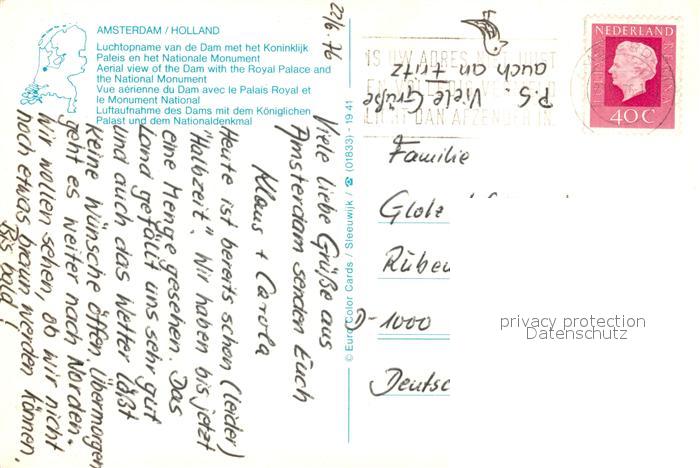 AMSTERDAM / HOLLAND
Luchtopname van de Dam met het Koninklijk
Paleis en het Nationale Monument
Aerial view of the Dam with the Royal Palace and
the National Monument
Vue aérienne du Dam avec le Palais Royal et
le Monument National
Luftaufnahme des Dams mit dem Königlichen
Palast und dem Nationaldenkmal
22/6. 76
Viele liebe Grüße aus
Amsterdam senden Euch
Klaus + Carola
Heute ist bereits schon (leider)
"Halbzeit". Wir haben bis jetzt
eine Menge gesehen. Das
Land gefällt uns sehr gut
und auch das Wetter läßt
keine Wünsche offen. Übermorgen
geht es weiter nach Norden.
Wir wollen sehen, ob wir nicht
noch etwas braun werden können.
Bis bald!
© Euro Color Cards / Sleeuwijk / ☎ (01833) - 19 41
P.S. Viele Grüße
auch an Fritz
IS UW ADRES JUIST
DAN AFZENDER IN.
NEDERLAND
40 C
Familie
Glob
Rüben
D-1000
Deutsc
privacy protection
Datenschutz